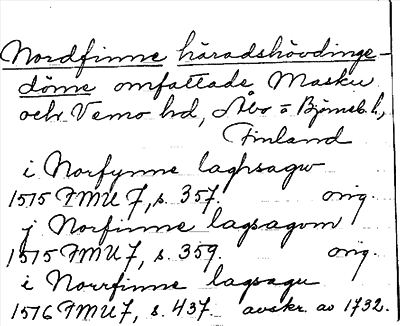 Nordfinne häradshövdinge-
döme omfattade Masku
och Vemo hd, Åbo o Björneb. l.,
Finland
i Norfynne laghsagw
1515 FMU 7, s. 357. orig.
j Norfinne lagsagvm
1515 FMU 7, s. 359. orig.
i Norrfinne lagsagu
1516 FMU 7, s. 437. avskr. av 1732.